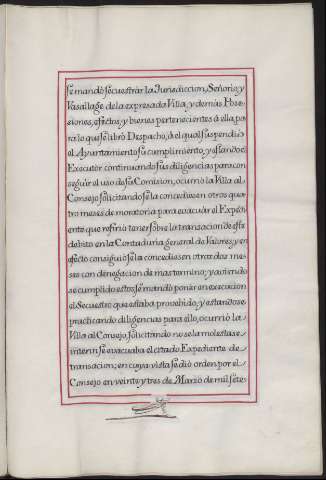 se mandó sequestrar la Jurisdiccion, Señorio, y
Vasallage de la expresada Villa, y demás Pose-
siones, efectos, y bienes pertenecientes á ella, pa-
ra lo que se libró Despacho, á el qual suspendió
el Ayuntamiento su cumplimiento, y estando el
Executór continuando sus diligencias para con
seguir el uso de su Comision, ocurrió la Villa al
Consejo solicitando se la concediesen otros qua
tro meses de moratoria para evacuár el Expedi
ente que refirió tenér sobre la transacion de este
debito en la Contaduría general de Valores, y en
efecto consiguió se la concediesen otros dos me
ses con denegacion de mas termino; y haviendo
se cumplido estos se mandó ponér en execucion
el Secuestro que estaba provehido, y estandose
practicando diligencias para ello, ocurrió la
Villa al Consejo, solicitando no se la molestase
interin se evacuaba el citado Expediente de
transacion; en cuya vista se dió orden por el
Consejo en veinte y tres de Marzo de mil sete-